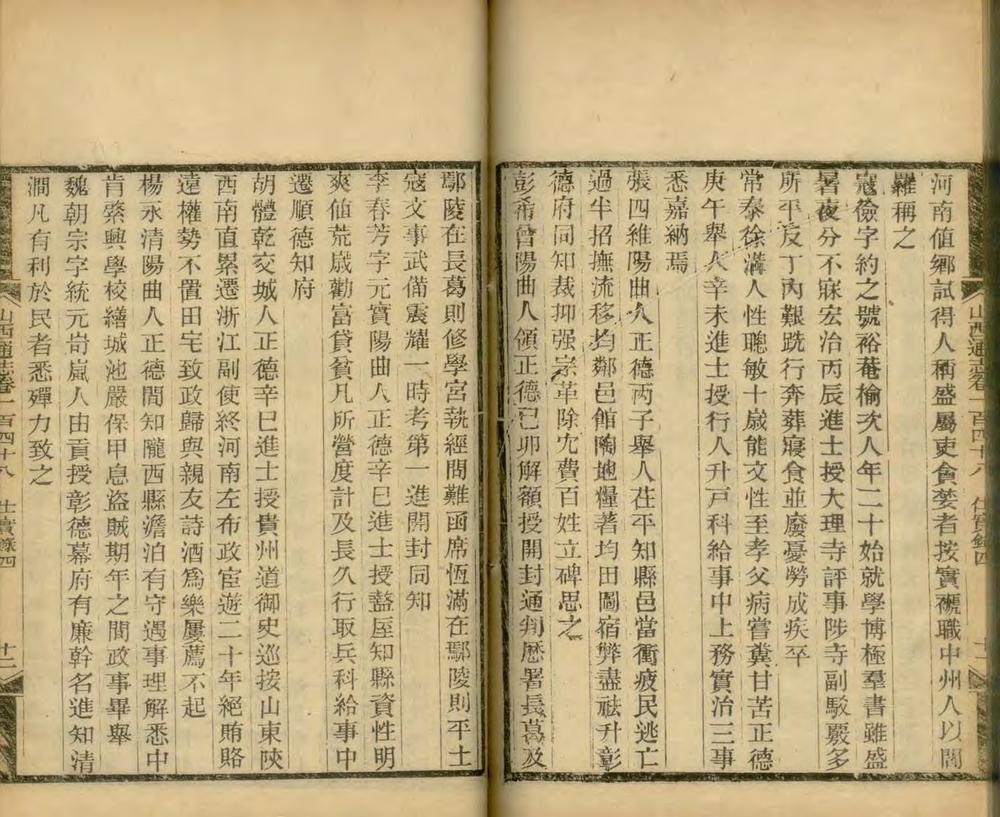 河南值鄉試得人稱盛屬吏貪婪者按實褫職中州人以閻
羅稱之
寇儉字約之號裕菴榆次人年二十始就學博極羣書雖盛
暑夜分不寐宏治丙辰進士授大理寺評事陟寺副駁覈多
所平反丁內艱跣行奔葬寢食並廢憂勞成疾卒
常泰徐溝人性聰敏十歲能文性至孝父病嘗糞甘苦正德
庚午舉人辛未進士授行人升戸科給事中上務實治三事
悉嘉納焉
張四維陽曲人正德丙子舉人茌平知縣邑當衝疲民逃亡
過半招撫流移均鄰邑館陶地糧著均田圖宿弊盡祛升彰
德府同知裁抑强宗革除冗費百姓立碑思之
彭希曾陽曲人領正德己卯解額授開封通判歷署長葛及
山西通志卷一百四十八 仕實錄四 十二
鄢陵在長葛則修學宮執經問難函席恆滿在鄢陵則平土
寇文事武備震耀一時考第一進開封同知
李春芳字元實陽曲人正德辛巳進士授盩厔知縣資性明
爽值荒歲勸富貸貧凡所營度計及長久行取兵科給事中
遷順德知府
胡體乾交城人正德辛巳進士授貴州道御史巡按山東陝
西南直累遷浙江副使終河南左布政宦遊二十年絕賄賂
遠權勢不置田宅致政歸與親友詩酒爲樂屢薦不起
楊永清陽曲人正德間知隴西縣澹泊有守遇事理解悉中
肯綮興學校繕城池嚴保甲息盜賊期年之間政事畢舉
魏朝宗字統元岢嵐人由貢授彰德幕府有廉幹名進知清
澗凡有利於民者悉殫力致之